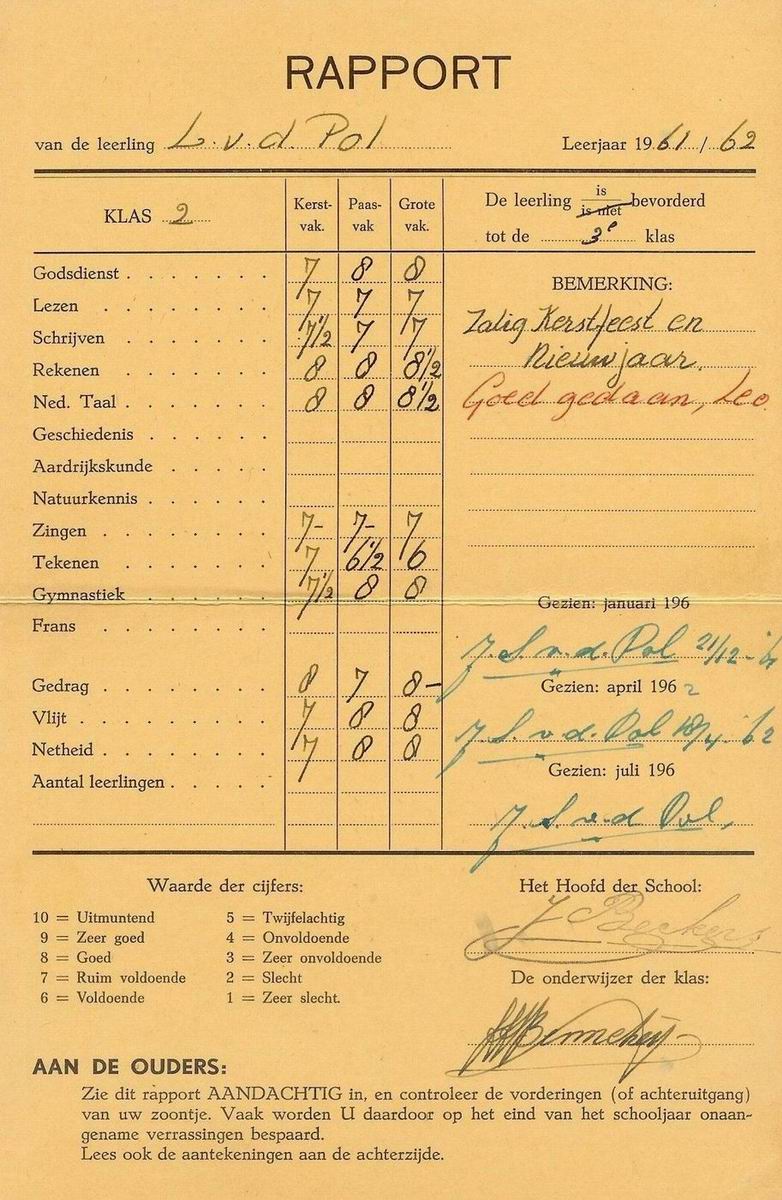 RAPPORT
van de leerling L. v. d. Pol Leerjaar 1961/62
KLAS 2
Kerst-vak. Paas-vak Grote vak.
De leerling is / is niet bevorderd
tot de 3e klas
Godsdienst 7 8 8
Lezen 7 7 7
Schrijven 7 1/2 7 7
Rekenen 8 8 8 1/2
Ned. Taal 8 8 8 1/2
Geschiedenis
Aardrijkskunde
Natuurkennis
Zingen 7- 7- 7
Tekenen 7 6 1/2 6
Gymnastiek 7 1/2 8 8
Frans
Gedrag 8 7 8-
Vlijt 7 8 8
Netheid 7 8 8
Aantal leerlingen
BEMERKING:
Zalig Kerstfeest en
Nieuwjaar.
Goed gedaan, Leo.
Gezien: januari 196
J. S. v. d. Pol 21/12-
Gezien: april 1962
J. S. v. d. Pol 18/4 '62
Gezien: juli 196
J. S. v. d. Pol,
Waarde der cijfers:
10 = Uitmuntend 5 = Twijfelachtig
9 = Zeer goed 4 = Onvoldoende
8 = Goed 3 = Zeer onvoldoende
7 = Ruim voldoende 2 = Slecht
6 = Voldoende 1 = Zeer slecht.
Het Hoofd der School:
J Beckers
De onderwijzer der klas:
AAN DE OUDERS:
Zie dit rapport AANDACHTIG in, en controleer de vorderingen (of achteruitgang)
van uw zoontje. Vaak worden U daardoor op het eind van het schooljaar onaan-
gename verrassingen bespaard.
Lees ook de aantekeningen aan de achterzijde.